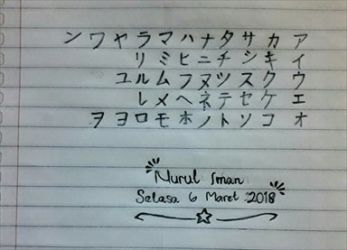 ン ワ ヤ ラ マ ハ ナ タ サ カ ア
リ ミ ヒ ニ チ シ キ イ
ユ ル ム フ ヌ ツ ス ク ウ
レ メ ヘ ネ テ セ ケ エ
ヲ ヨ ロ モ ホ ノ ト ソ コ オ
Nurul Iman
Selasa 6 Maret 2018